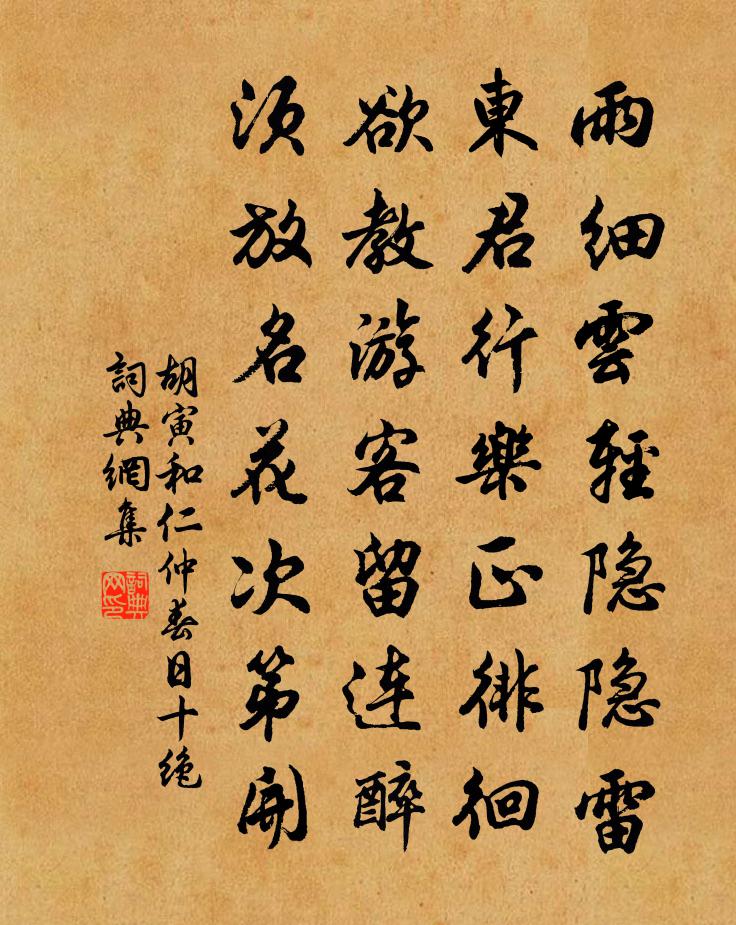 雨細雲輕隐隐雷
東君行樂正徘徊
欲教游客留連醉
須放名花次第開
胡寅和仁仲春日十绝
詞典網集
詞典网印